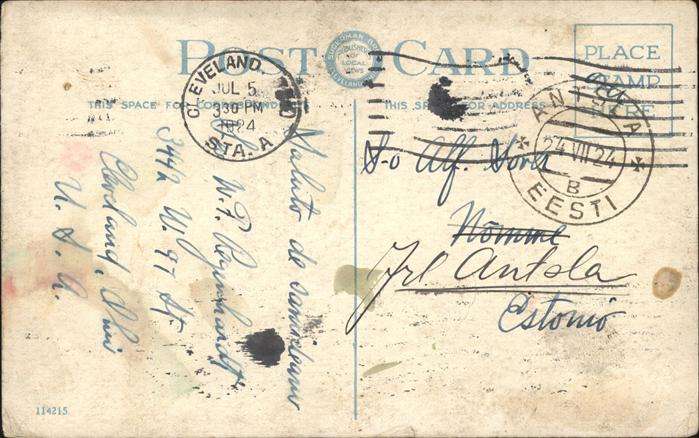 POST CARD
PLACE
STAMP
HERE
THIS SPACE FOR CORRESPONDENCE
THIS SPACE FOR ADDRESS
CLEVELAND
JUL 5
330 PM
1924
STA. A
ANTSLA
24 VII 24
B
EESTI
Saluto de samideano
W. F.
3442 W. 97 St.
Cleveland, Ohio
U. S. A.
S-o Alf.
Nõmme
Antsla
Estonio
114215